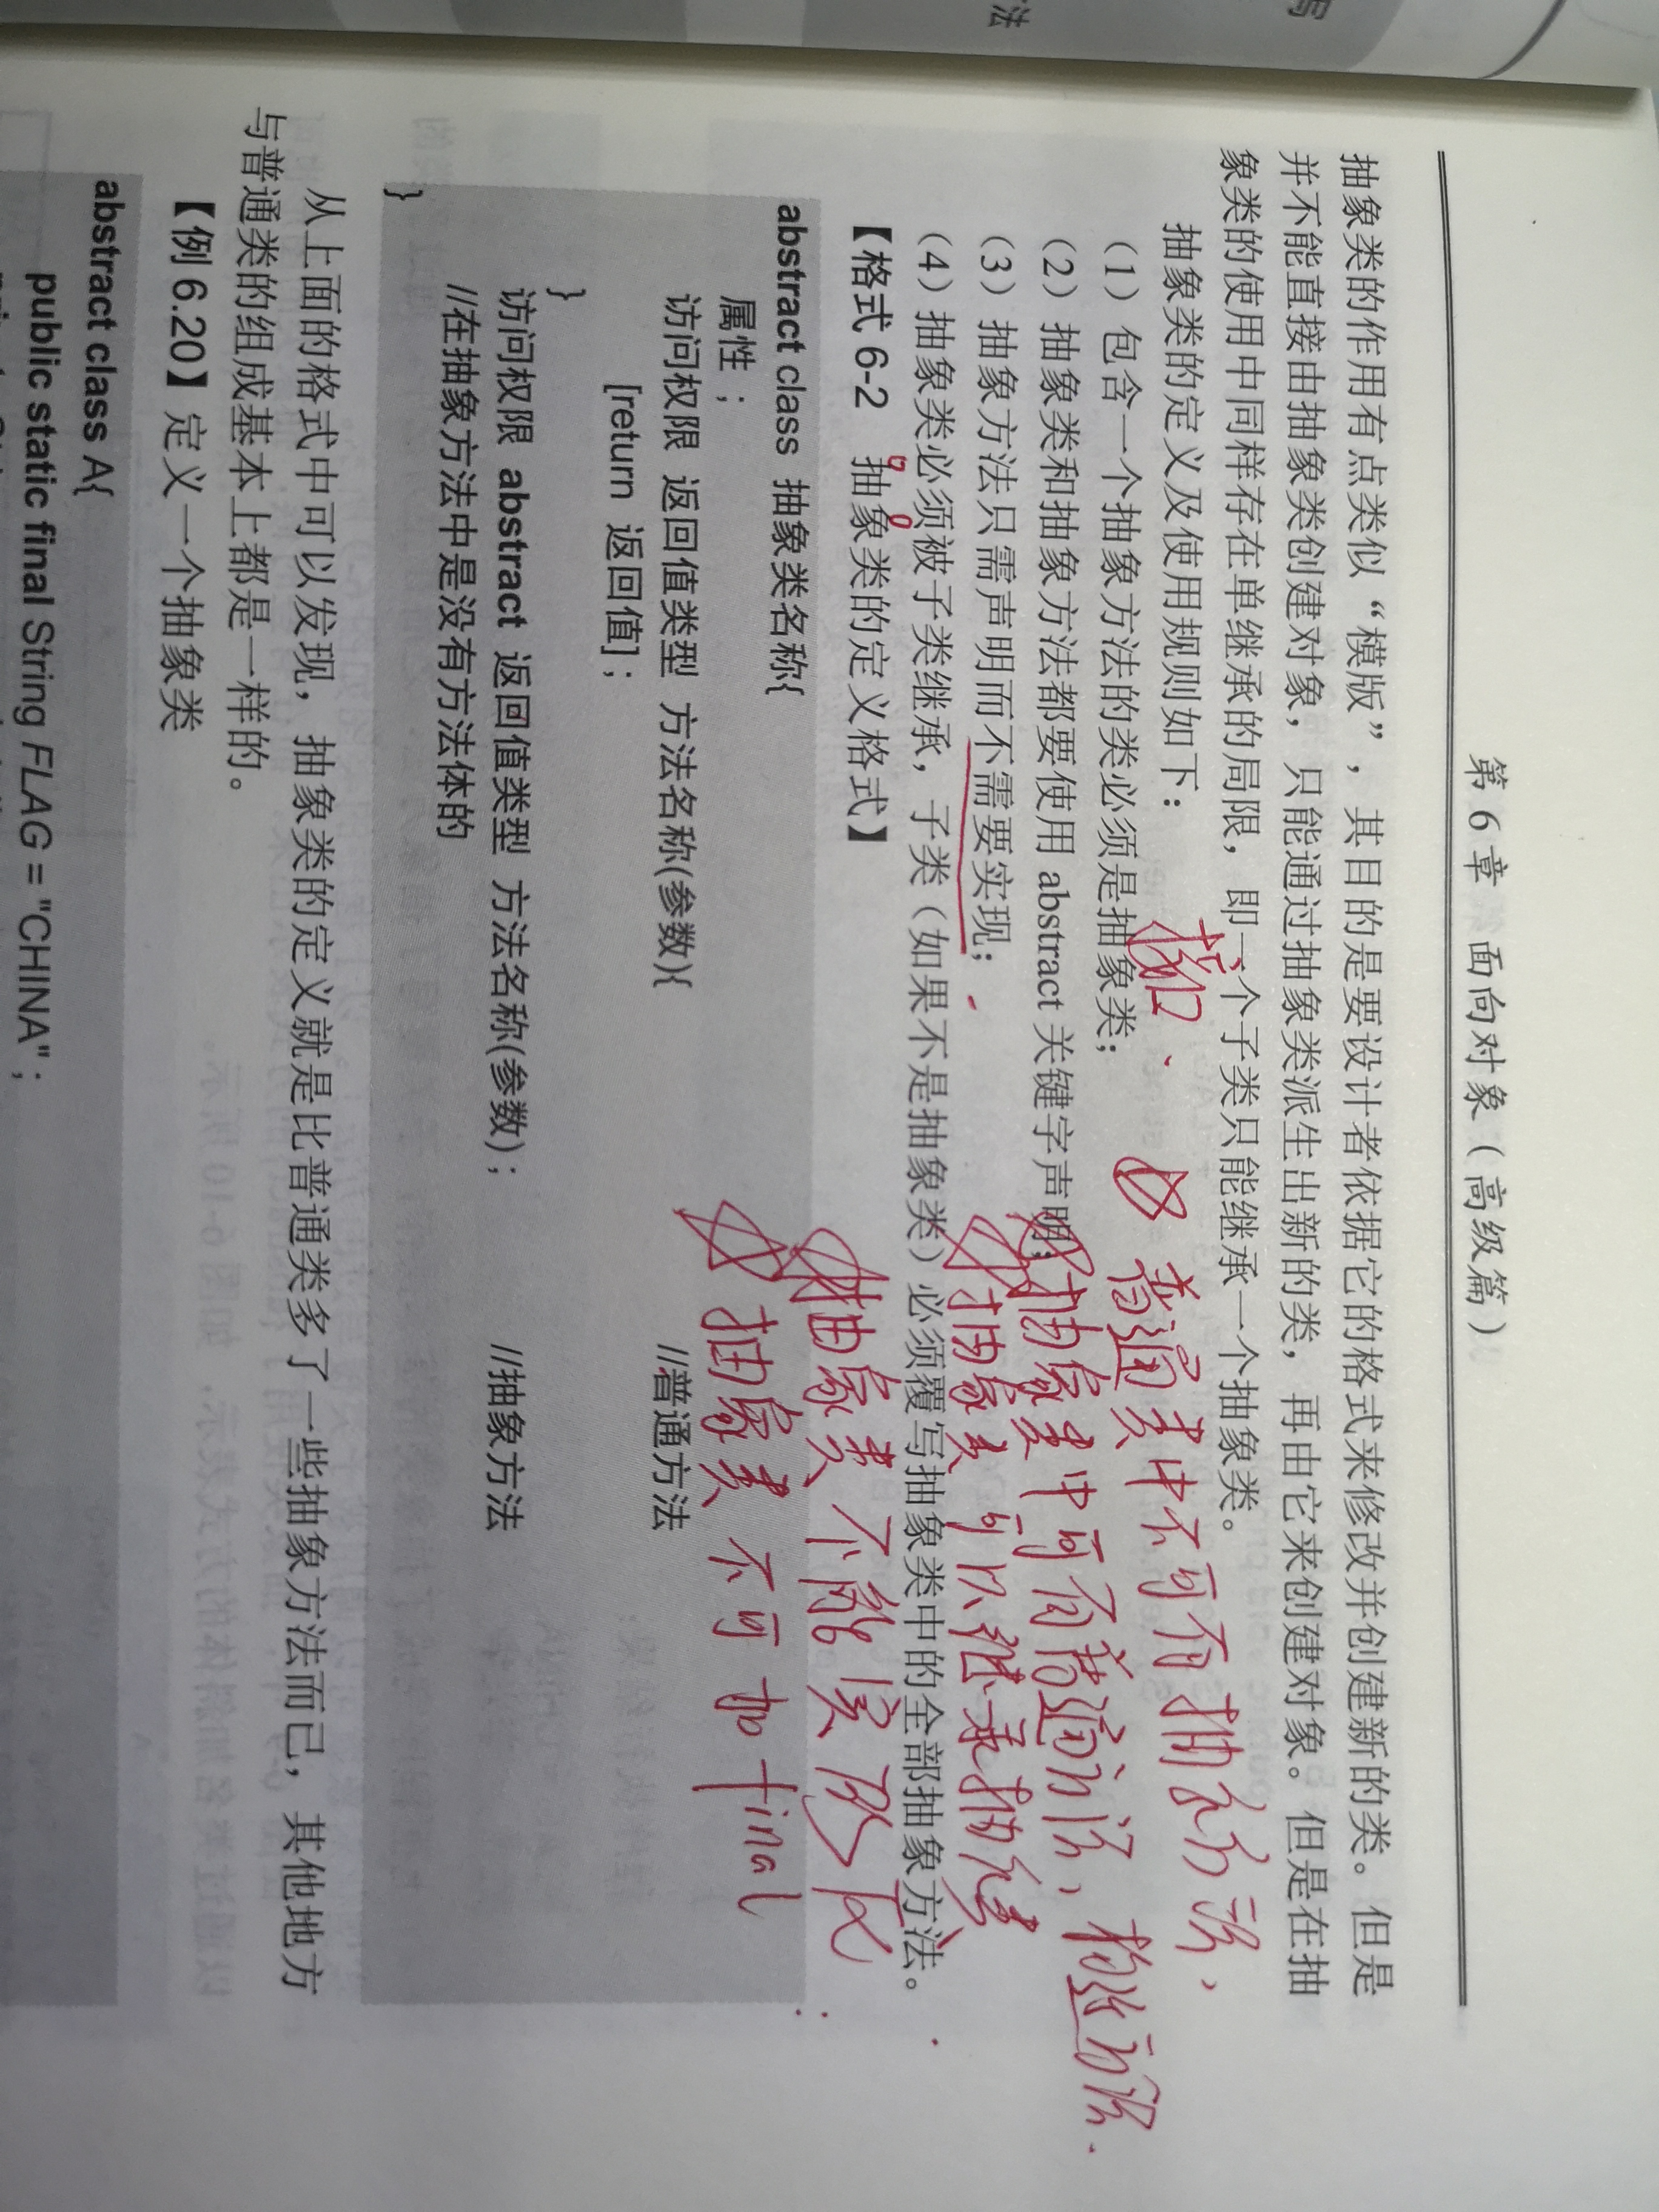 第 6 章  面向对象（高级篇）
抽象类的作用有点类似“模版”，其目的是要设计者依据它的格式来修改并创建新的类。但是
并不能直接由抽象类创建对象，只能通过抽象类派生出新的类，再由它来创建对象。但是在抽
象类的使用中同样存在单继承的局限，即一个子类只能继承一个抽象类。
抽象类的定义及使用规则如下：
（1）包含一个抽象方法的类必须是抽象类；
普通类中不可有抽象方法，
（2）抽象类和抽象方法都要使用 abstract 关键字声明；
抽象类中可有普通方法，构造方法.
（3）抽象方法只需声明而不需要实现；
抽象类可以继承抽象
（4）抽象类必须被子类继承，子类（如果不是抽象类）必须覆写抽象类中的全部抽象方法。
【格式 6-2  抽象类的定义格式】
抽象类不能实例化
abstract class 抽象类名称{
抽象类 不可 加 final
属性 ;
访问权限 返回值类型 方法名称(参数){ //普通方法
[return 返回值] ;
}
访问权限 abstract 返回值类型 方法名称(参数) ; //抽象方法
//在抽象方法中是没有方法体的
}
从上面的格式中可以发现，抽象类的定义就是比普通类多了一些抽象方法而已，其他地方
与普通类的组成基本上都是一样的。
【例 6.20】定义一个抽象类
abstract class A{
public static final String FLAG = "CHINA" ;